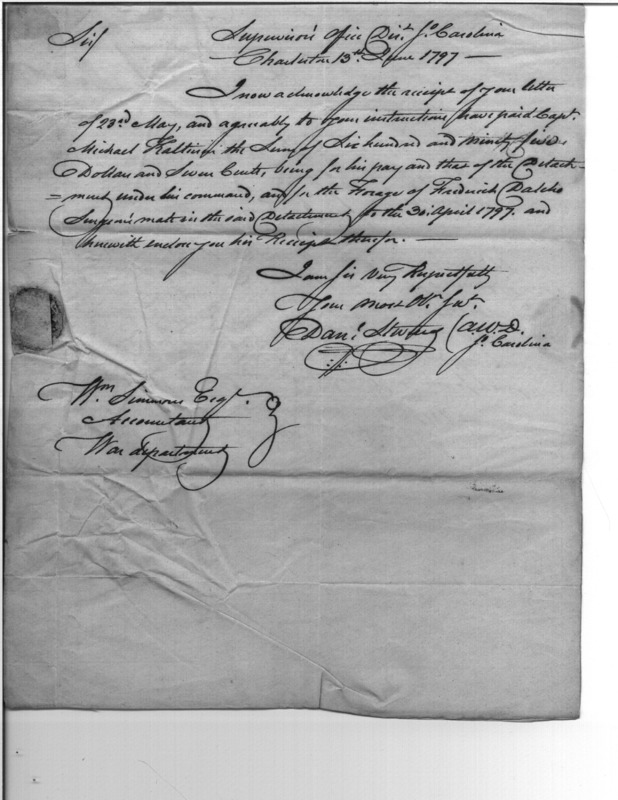 Sir
Supervisor's Office Dist. So. Carolina
Charleston 13th June 1797 —
I now acknowledge the receipt of your letter
of 23rd May, and agreeably to your instructions, have paid Capt.
Michael Kalteisen the Sum of Six hundred and ninety five
Dollars and Seven Cents, being for his pay and that of the Detach-
=ment under his command, and for the Forage of Fredrick Dalcho
Surgeon's mate in the said Detachment to the 30 April 1797. and
herewith enclose you his Receipts therefor. —
I am Sir Very Respectfully
Your most Ob. Sert.
Danl. Stevens
A.W.D.
So. Carolina
Wm Simmons Esqr.
Accountant
War department